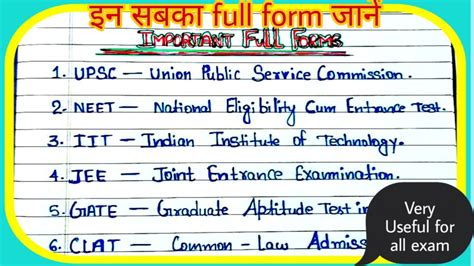 इन सबका full form जानें
IMPORTANT FULL FORMS
1. UPSC — Union Public Service Commission.
2. NEET — National Eligibility Cum Entrance Test.
3. IIT — Indian Institute of Technology.
4. JEE — Joint Entrance Examination.
5. GATE — Graduate Aptitude Test in
6. CLAT — Common - Law Admiss
Very
Useful for
all exam